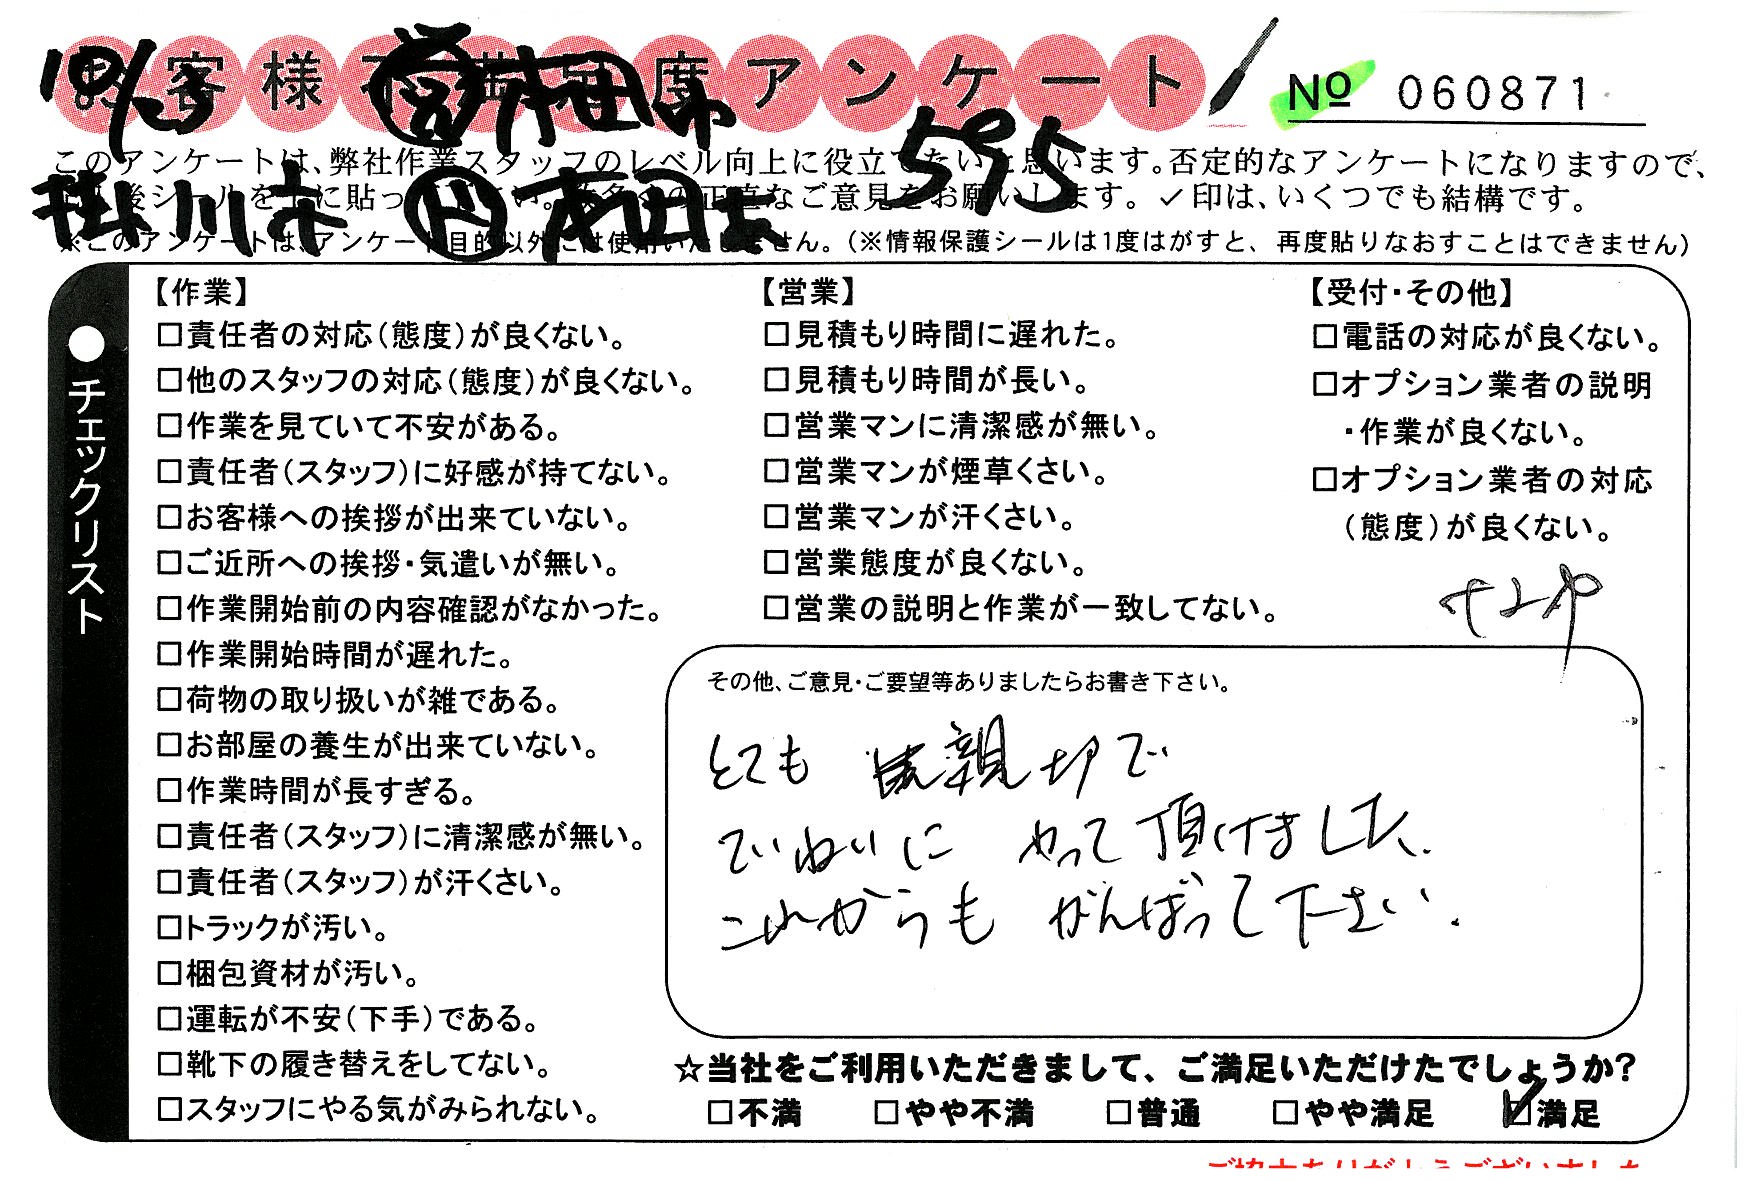 お客様不満足度アンケート
№ 060871
10/23 営 村田 席 595
掛川市 ド
このアンケートは、弊社作業スタッフのレベル向上に役立てたいと思います。否定的なアンケートになりますので、
後シールを上に貼って 正直なご意見をお願いします。✓印は、いくつでも結構です。
※このアンケートは、アンケート目的以外には使用いたしません。（※情報保護シールは1度はがすと、再度貼りなおすことはできません）
●チェックリスト
【作業】
□責任者の対応（態度）が良くない。
□他のスタッフの対応（態度）が良くない。
□作業を見ていて不安がある。
□責任者（スタッフ）に好感が持てない。
□お客様への挨拶が出来ていない。
□ご近所への挨拶・気遣いが無い。
□作業開始前の内容確認がなかった。
□作業開始時間が遅れた。
□荷物の取り扱いが雑である。
□お部屋の養生が出来ていない。
□作業時間が長すぎる。
□責任者（スタッフ）に清潔感が無い。
□責任者（スタッフ）が汗くさい。
□トラックが汚い。
□梱包資材が汚い。
□運転が不安（下手）である。
□靴下の履き替えをしてない。
□スタッフにやる気がみられない。
【営業】
□見積もり時間に遅れた。
□見積もり時間が長い。
□営業マンに清潔感が無い。
□営業マンが煙草くさい。
□営業マンが汗くさい。
□営業態度が良くない。
□営業の説明と作業が一致してない。
【受付・その他】
□電話の対応が良くない。
□オプション業者の説明
・作業が良くない。
□オプション業者の対応
（態度）が良くない。
その他、ご意見・ご要望等ありましたらお書き下さい。
とても 親切で
ていねいに やって頂けました。
これからも がんばって下さい。
☆当社をご利用いただきまして、ご満足いただけたでしょうか?
□不満 □やや不満 □普通 □やや満足 ☑満足
ご協力ありがとうございました